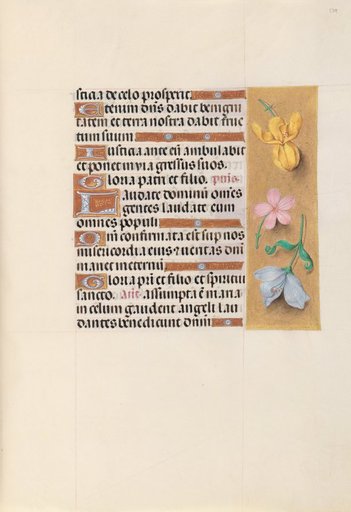 sticia de celo prosperit.
Etenim dñs dabit benigni
tatem et terra nostra dabit fruc
tum suum.
Iusticia ante eũ ambulabit
et ponet in via gressus suos.
Gloria patri et filio. p̃us.
Laudate dominũ om̃es
gentes laudate eum
omnes populi
Qm̃ confirmata est sup nos
misericordia eius et veritas dñi
manet in eternũ
Gloria pri et filio et spiritui
sancto. añ. assumpta ẽ maria
in celum gaudent angeli lau
dantes benedicunt dñm